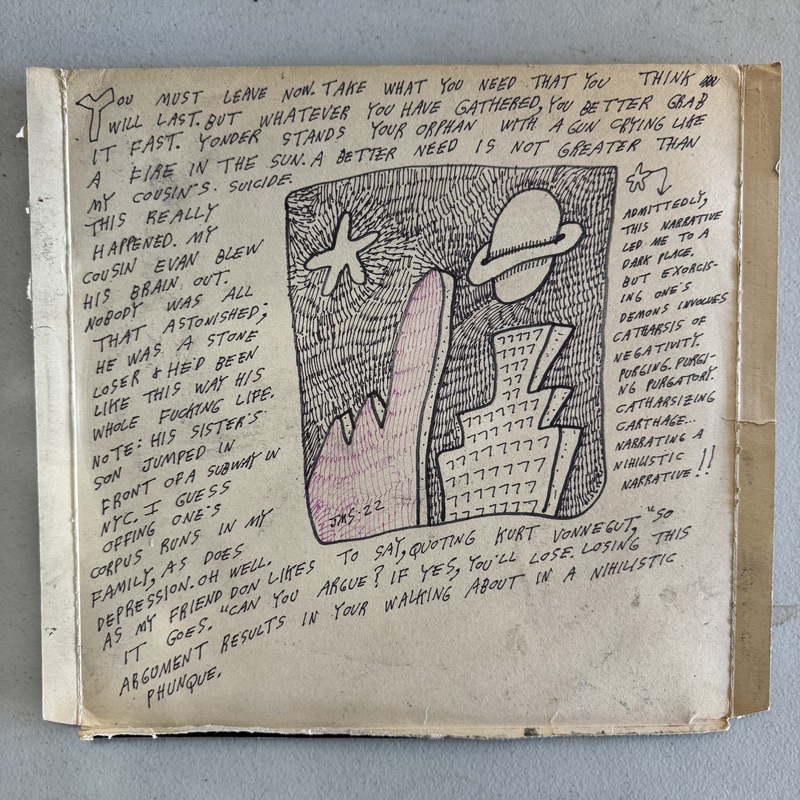 YOU MUST LEAVE NOW. TAKE WHAT YOU NEED THAT YOU THINK
WILL LAST. BUT WHATEVER YOU HAVE GATHERED, YOU BETTER GRAB
IT FAST. YONDER STANDS YOUR ORPHAN WITH A GUN CRYING LIKE
A FIRE IN THE SUN. A BETTER NEED IS NOT GREATER THAN
MY COUSIN'S SUICIDE.
THIS REALLY
HAPPENED. MY
COUSIN EVAN BLEW
HIS BRAIN OUT.
NOBODY WAS ALL
THAT ASTONISHED;
HE WAS A STONE
LOSER & HE'D BEEN
LIKE THIS WAY HIS
WHOLE FUCKING LIFE.
NOTE: HIS SISTER'S
SON JUMPED IN
FRONT OF A SUBWAY IN
NYC. I GUESS
OFFING ONE'S
CORPUS RUNS IN MY
FAMILY, AS DOES
DEPRESSION. OH WELL.
AS MY FRIEND DON LIKES TO SAY, QUOTING KURT VONNEGUT, "SO
IT GOES. "CAN YOU ARGUE? IF YES, YOU'LL LOSE. LOSING THIS
ARGUMENT RESULTS IN YOUR WALKING ABOUT IN A NIHILISTIC
PHUNQUE.
ADMITTEDLY,
THIS NARRATIVE
LED ME TO A
DARK PLACE.
BUT EXORCIS-
ING ONE'S
DEMONS INVOLVES
CATHARSIS OF
NEGATIVITY.
PURGING. PURGI-
NG PURGATORY.
CATHARSIZING
CARTHAGE...
NARRATING A
NIHILISTIC
NARRATIVE!!
JMS·22